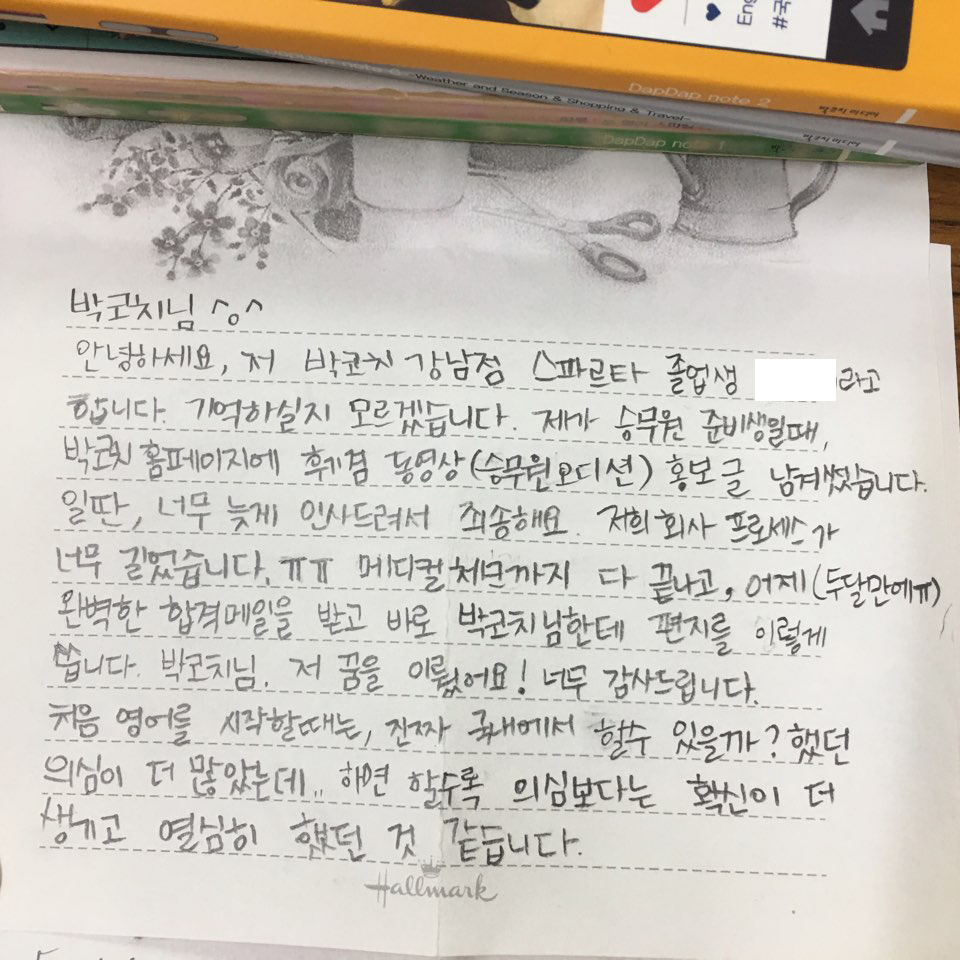 Eng
#국
DapDap note 2
~Weather and Season & Shopping & Travel~
DapDap note 1
박코치님 ^o^
안녕하세요, 저 박코치 강남점 스파르타 졸업생 라고
합니다. 기억하실지 모르겠습니다. 제가 승무원 준비생일때,
박코치 홈페이지에 후기겸 동영상(승무원오디션) 홍보글 남겼었습니다.
일딴, 너무 늦게 인사드려서 죄송해요. 저희 회사 프로세스가
너무 길었습니다. ㅠㅠ 메디컬체크까지 다 끝나고, 어제(두달만에ㅠ)
완벽한 합격메일을 받고 바로 박코치님한테 편지를 이렇게
씁니다. 박코치님. 저 꿈을 이뤘어요! 너무 감사드립니다.
처음 영어를 시작할때는, 진짜 국내에서 할수 있을까? 했던
의심이 더 많았는데.. 하면 할수록 의심보다는 확신이 더
생기고 열심히 했던 것 같습니다.
Hallmark